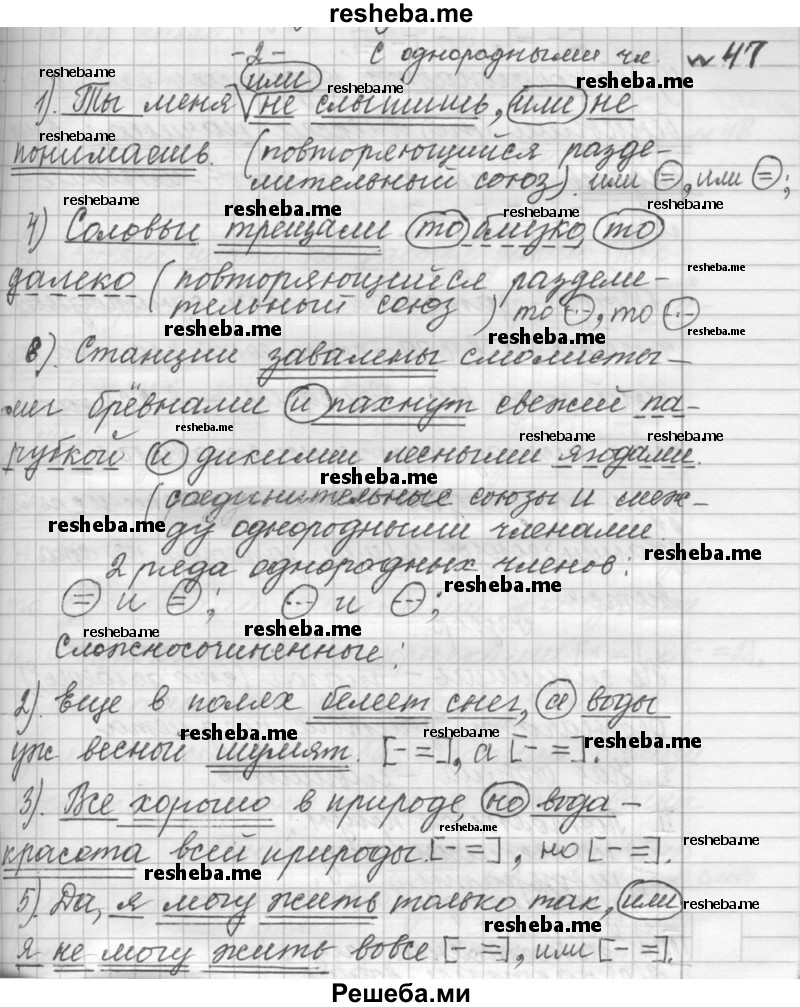 resheba.me
-2- С однородными чл. № 47
resheba.me
или resheba.me resheba.me
1). Ты меня не слышишь, или не
resheba.me
понимаешь. (повторяющийся разде-
лительный союз). или =, или =;
resheba.me resheba.me resheba.me
4) Соловьи трещали то близко то
далеко (повторяющийся раздели- resheba.me
тельный союз) то, то
resheba.me resheba.me
8). Станции завалены смолисты-
ми брёвнами и пахнут свежий па-
resheba.me resheba.me resheba.me
рубкой и дикими лесными ягодами.
resheba.me
(соединительные союзы и меж-
resheba.me ду однородными членами. resheba.me
2 ряда однородных членов:
resheba.me
= и =; и ;
resheba.me resheba.me
Сложносочиненные:
2). Еще в полях белеет снег, а воды
resheba.me resheba.me resheba.me
уж весной шумят. [- =], а [- =].
3). Все хорошо в природе, но вода -
resheba.me resheba.me
красота всей природы. [- =], но [- =].
resheba.me resheba.me
5). Да, я могу жить только так, или
resheba.me
я не могу жить вовсе [- =], или [- =].
Решеба.ми